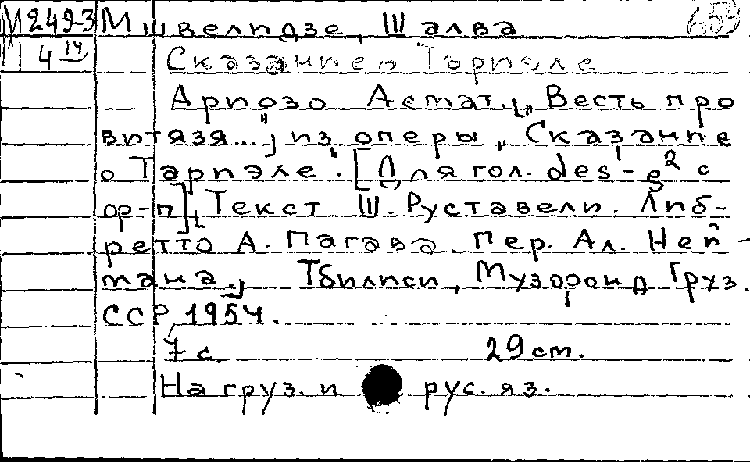 М 249-3 Мшвелидзе, Шалва 653
4 14 Сказание о Тариэле
Ариозо Асмат. "Весть про
витязя..." из оперы "Сказание
о Тариэле". [Для гол. des¹-g² с
ор-п]. Текст Ш. Руставели. Либ-
ретто А. Пагава. Пер. Ал. Ней-
мана. Тбилиси, Музфонд Груз.
ССР, 1954.
7 с. 29 cm.
На груз. и рус. яз.